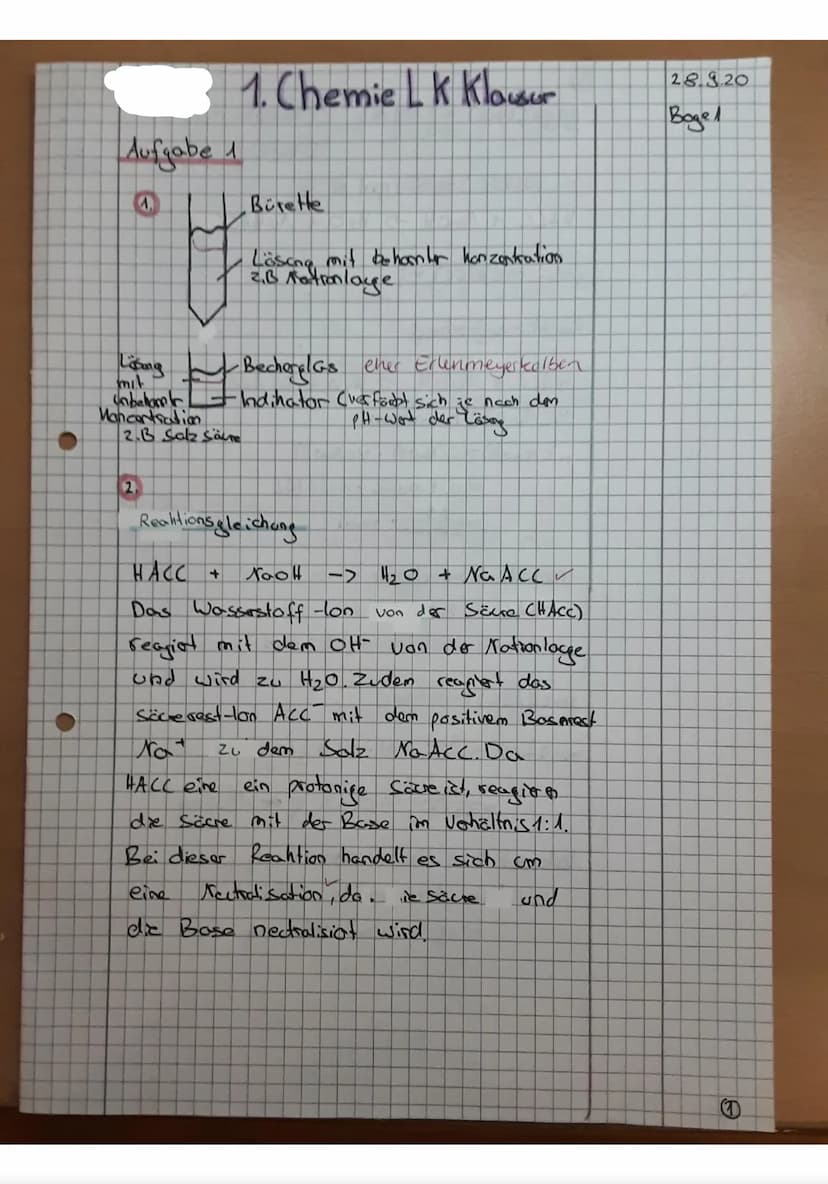 1. Chemie LK Klausur
28.9.20
Bogen 1
Aufgabe 1
1.
Bürette
Lösung mit bekannter Konzentration
z.B Natronlauge
Becherglas eher Erlenmeyerkolben
Lösung
mit
unbekannter
Konzentration
z.B Salzsäure
Indikator (verfärbt sich je nach dem
pH-Wert der Lösung
2.
Reaktionsgleichung
HACC + NaOH -> H2O + NaACC ✓
Das Wasserstoff-Ion von der Säure (HAcc)
reagiert mit dem OH- von der Natronlauge
und wird zu H2O. Zudem reagiert das
Säurerest-Ion ACC- mit dem positivem Basenrest
Na+ zu dem Salz NaAcc. Da
HACC eine ein protonige Säure ist, reagieren
die Säure mit der Base im Verhältnis 1:1.
Bei dieser Reaktion handelt es sich um
eine Neutralisation ✓, da die Säure und
die Base neutralisiert wird.
1